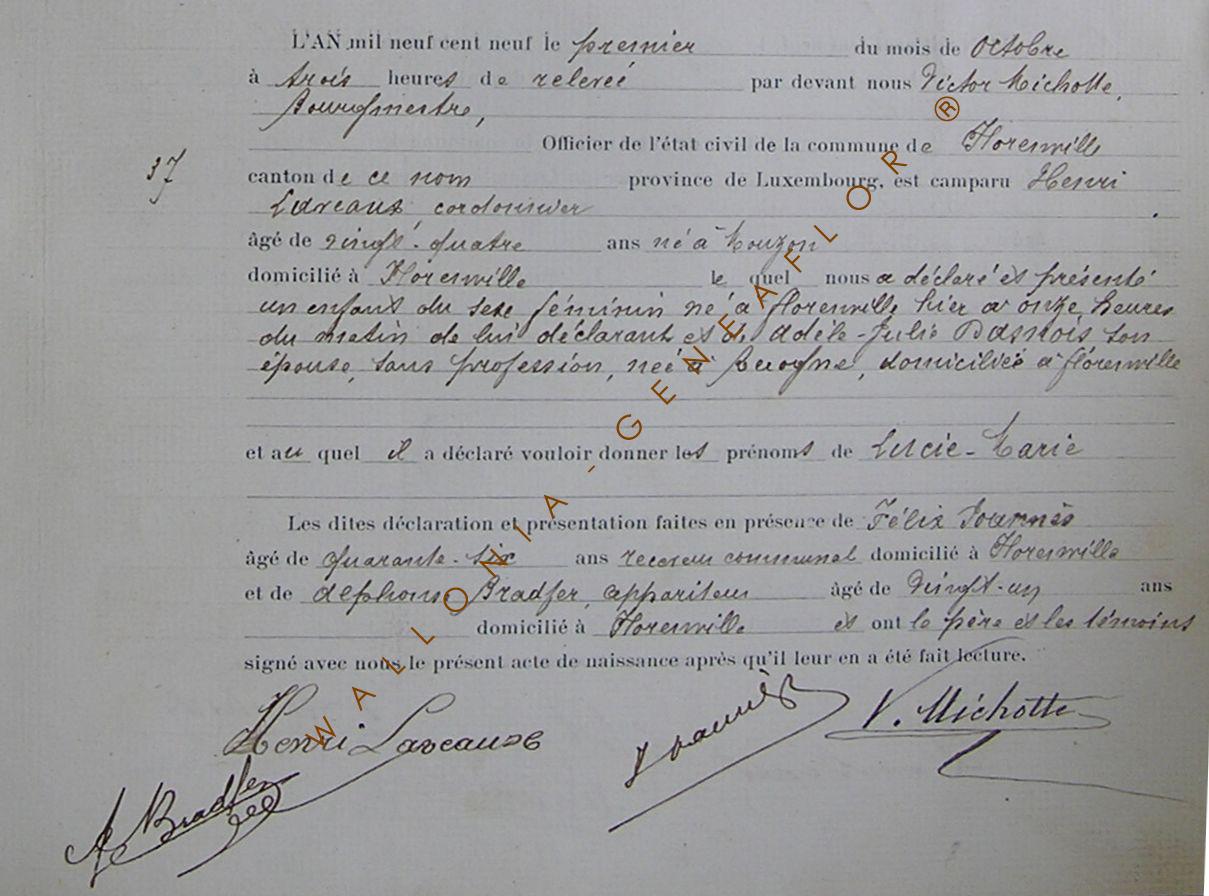 L'AN mil neuf cent neuf le premier du mois de Octobre
à trois heures de relevée par devant nous Victor Michotte,
Bourgmestre,
Officier de l'état civil de la commune de Florenville
37
canton de ce nom province de Luxembourg, est camparu Henri
Lareaux cordonnier
âgé de vingt-quatre ans né à Mouzon
domicilié à Florenville le quel nous a déclaré et présenté
un enfant du sexe féminin né à Florenville hier à onze heures
du matin de lui déclarant et de Adèle-Julie Dasnois son
épouse, sans profession, née à , domiciliée à Florenville
et au quel il a déclaré vouloir donner les prénoms de Lucie-Marie
Les dites déclaration et présentation faites en présence de Félix
âgé de quarante-six ans receveur communal domicilié à Florenville
et de Alphonse Bradfer, appariteur âgé de vingt-un ans
domicilié à Florenville et ont le père et les témoins
signé avec nous le présent acte de naissance après qu'il leur en a été fait lecture.
Henri Lareaux
V. Michotte
A Bradfer
WALLONIA-GENEAFLOR ®